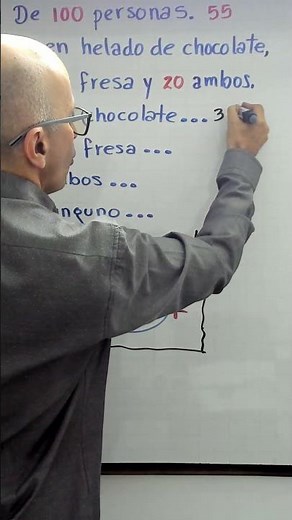 De 100 personas. 55
en helado de chocolate,
fresa y 20 ambos.
chocolate... 3
fresa ...
bos ...
nguno ...
F